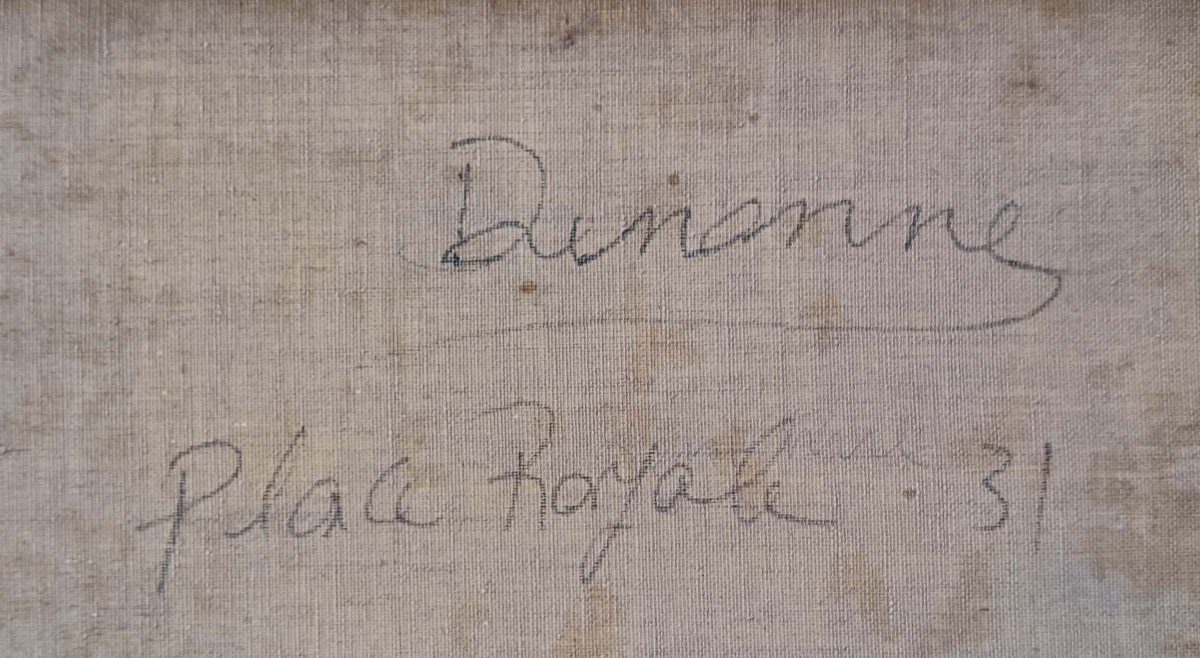 Dunonne
Place Royale 31